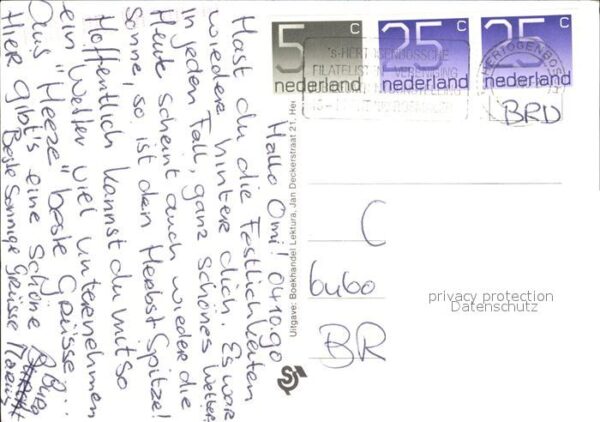 Hallo Omi! 04.10.90
Hast du die Festlichkeiten
wieder hinter dich. Es war
in jedem Fall, ganz schönes Wetter.
Heute scheint auch wieder die
Sonne, so ist der Herbst Spitze!
Hoffentlich kannst du mit so
ein Wetter viel unternehmen
Aus "Heeze" beste Grüsse...
Hier gibt's eine schöne Burg
Beste Sonnige Grüsse
5 c
nederland
25 c
nederland
25 c
nederland
'S-HERTOGENBOSSCHE
FILATELISTEN VERENIGING
BRD
C
6460
BR
Uitgave: Boekhandel Lektura, Jan Deckerstraat 21, Hee
privacy protection
Datenschutz